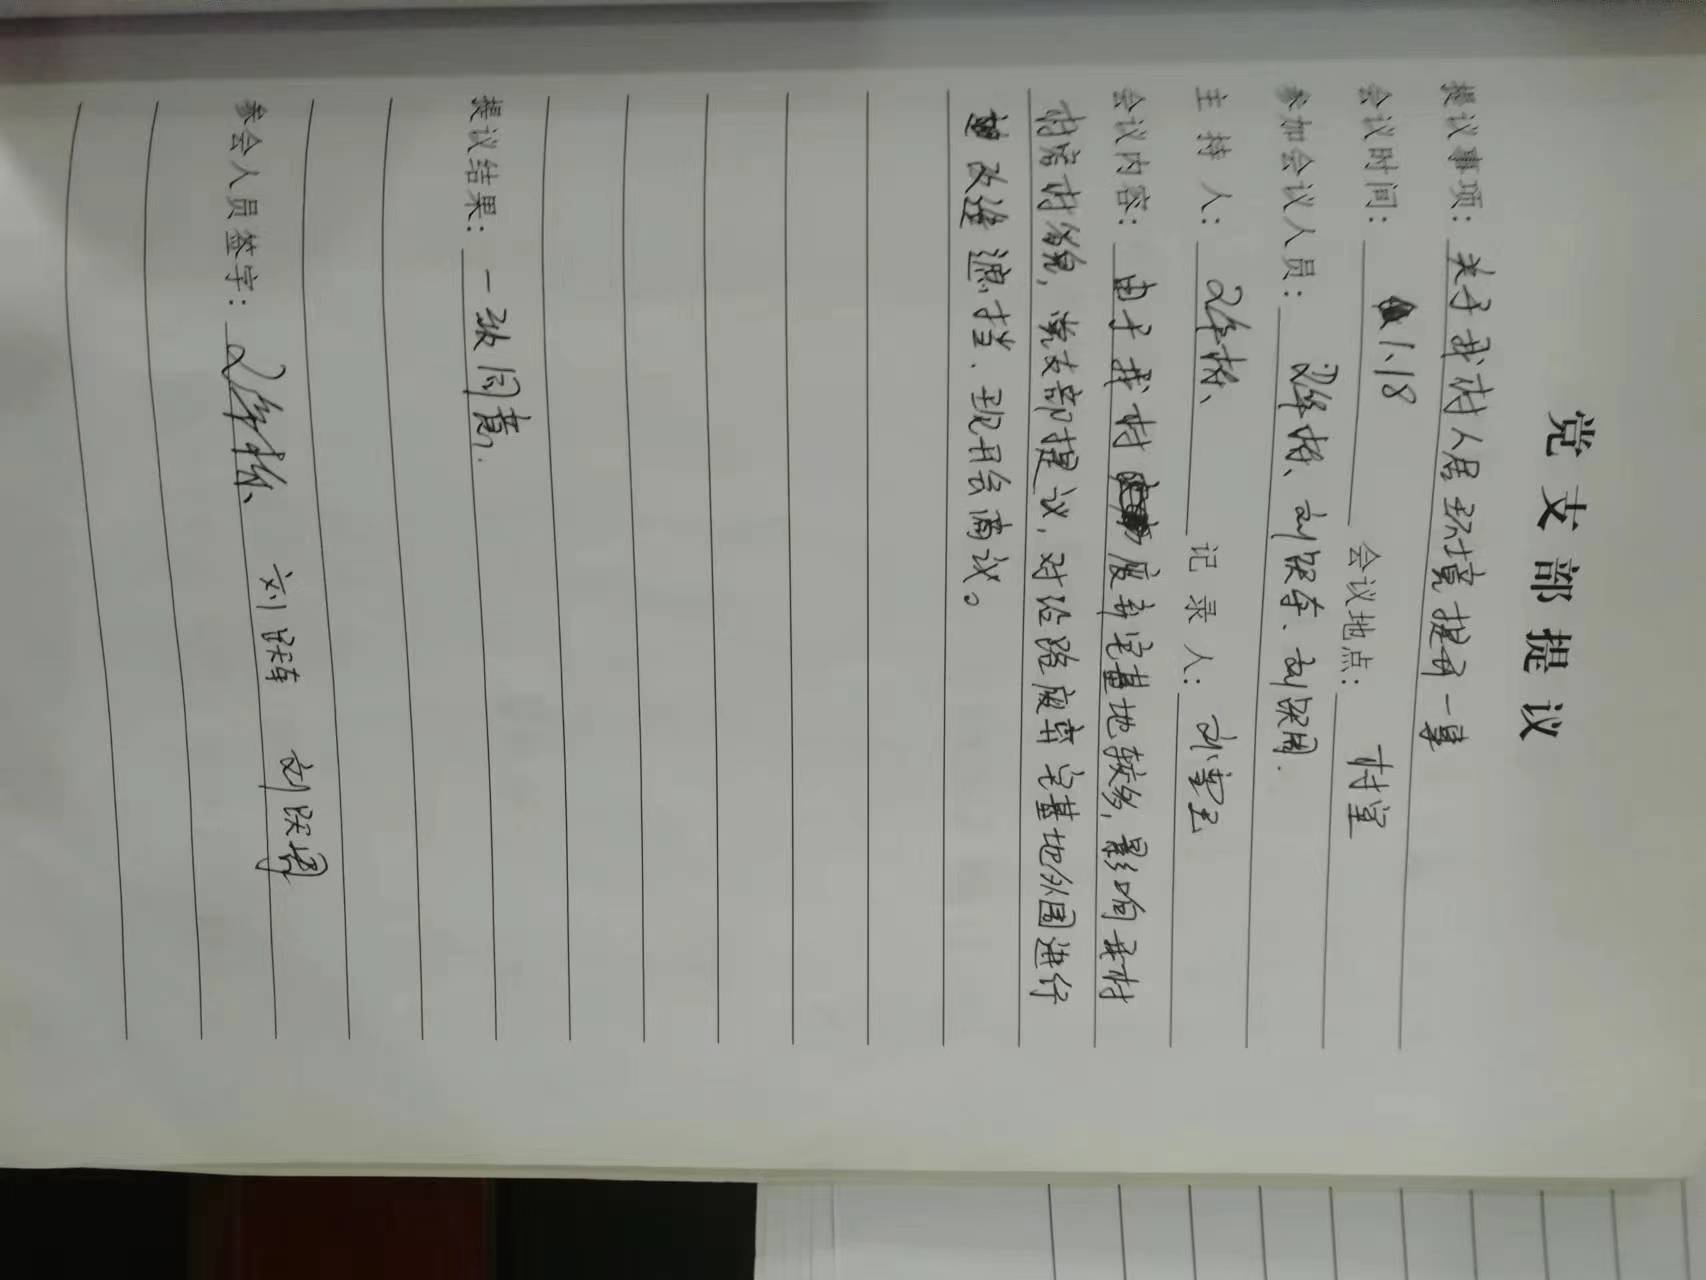 党支部提议
提议事项：关于我村人居环境提升一事
会议时间：1.18 会议地点：村室
参加会议人员：刘跃存、刘跃周.
主持人： 记录人：刘宝玉
会议内容：由于我村废弃宅基地较多，影响我村
村容村貌，党支部提议，对沿路废弃宅基地外围进行
改造遮挡．现开会商议。
提议结果：一致同意．
参会人员签字：刘跃存 刘跃周